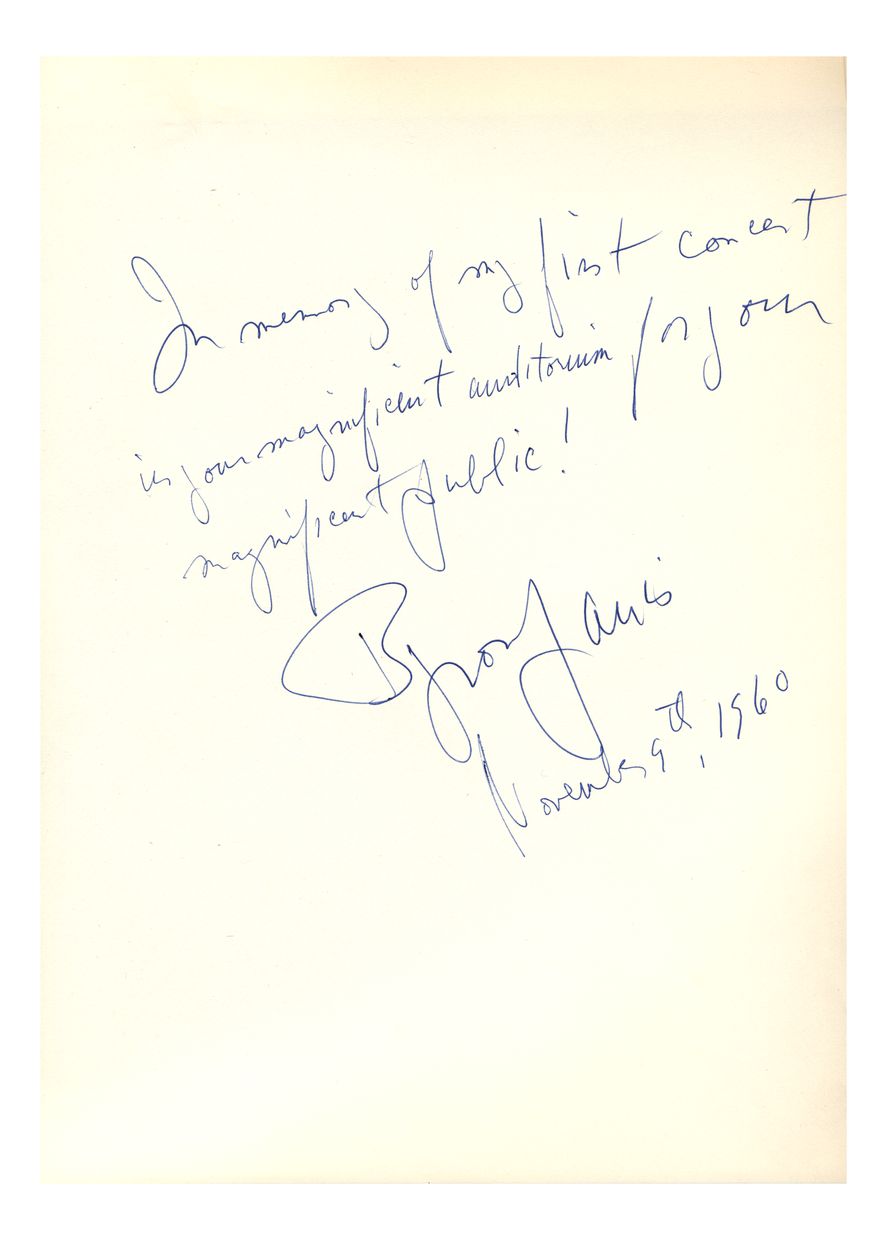 In memory of my first concert
in your magnificent auditorium for your
magnificent public!
Byron Janis
November 9th, 1960